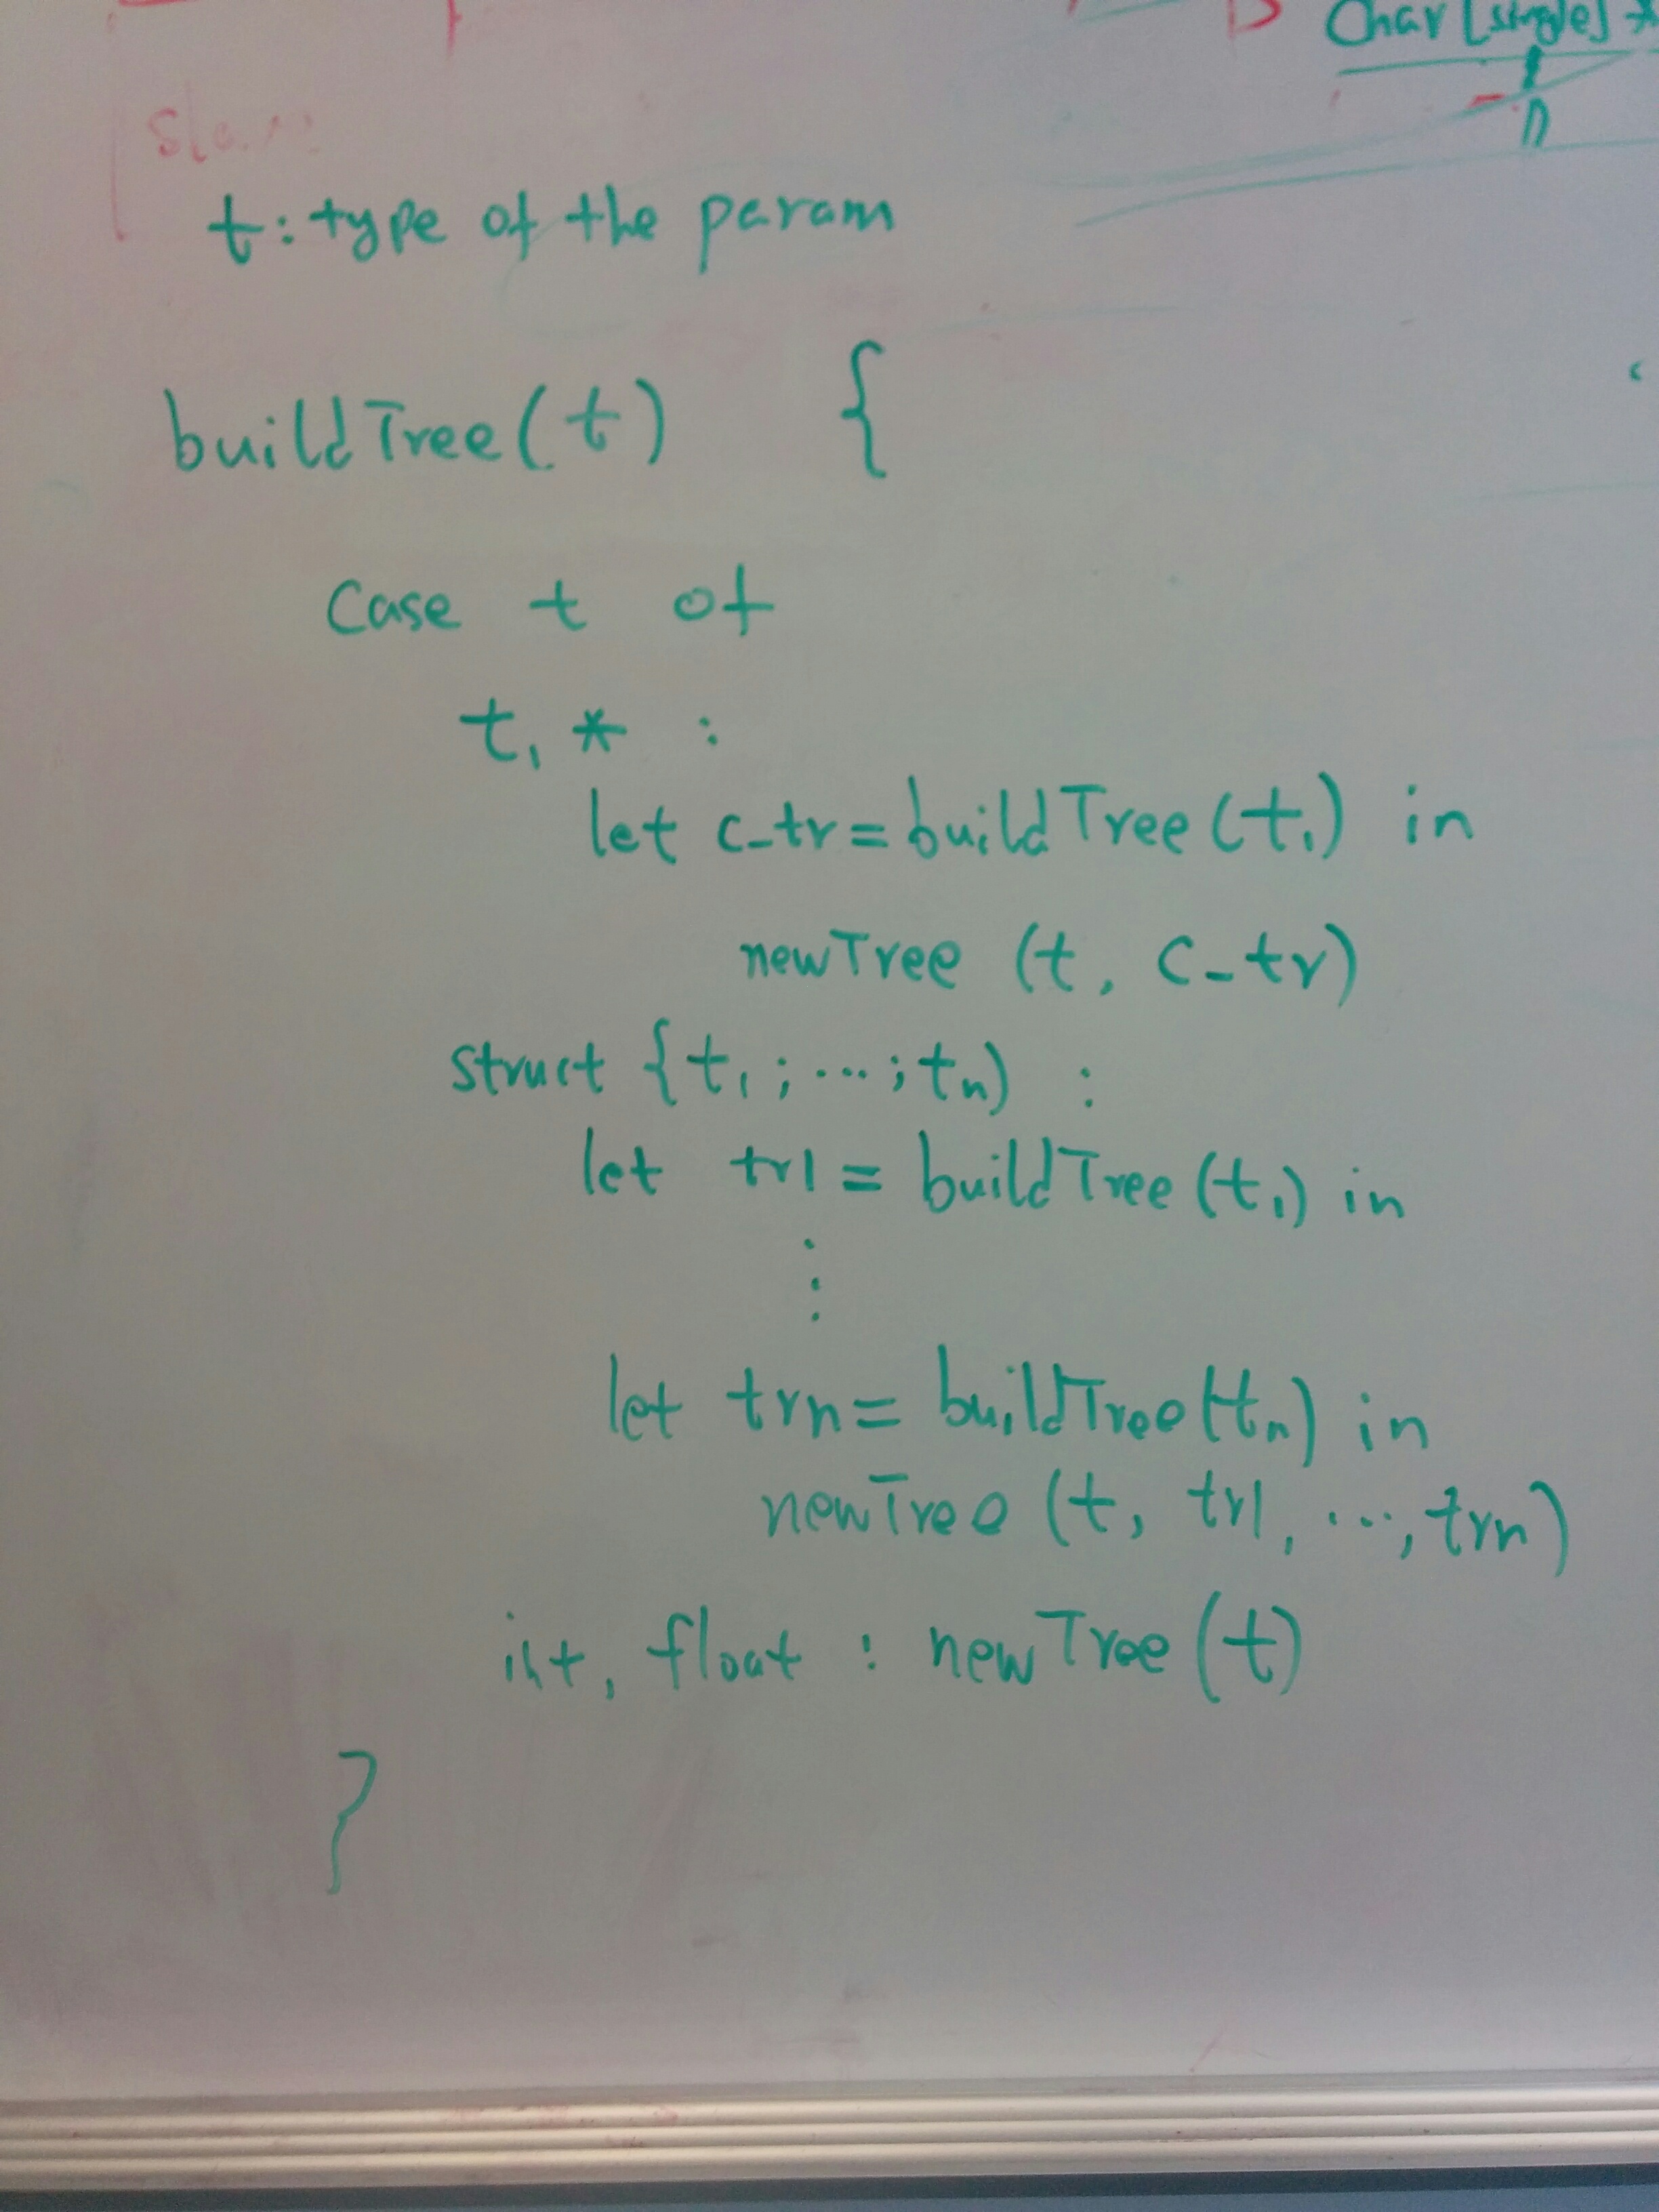 Char [single] *
t: type of the param
buildTree(t) {
Case t of
t₁ * :
let c_tr = buildTree (t₁) in
newTree (t, c_tr)
struct {t₁; ...; tₙ) :
let tr1 = buildTree (t₁) in
⋮
let trn = buildTree(tₙ) in
newTree (t, tr1, ..., trn)
int, float : newTree (t)
}